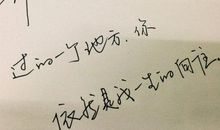 过的一个地方.你
依然是我一生的向往.